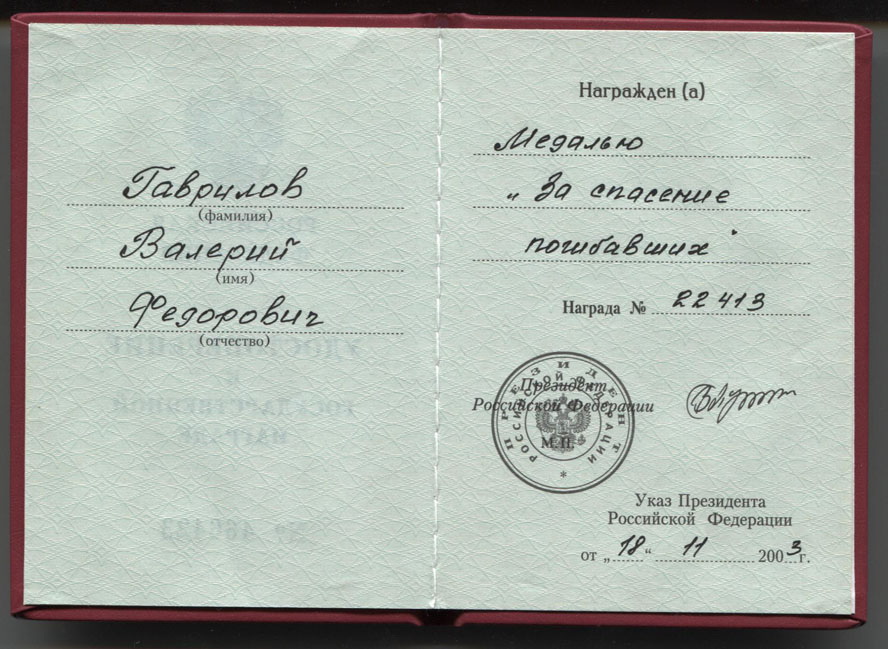 Гаврилов
(фамилия)
Валерий
(имя)
Федорович
(отчество)
Награжден (а)
Медалью
„ За спасение
погибавших"
Награда № 22413
Президент
Российской Федерации
М.П.
ПРЕЗИДЕНТ
РОССИЙСКОЙ ФЕДЕРАЦИИ
Указ Президента
Российской Федерации
от „18“ 11 2003г.